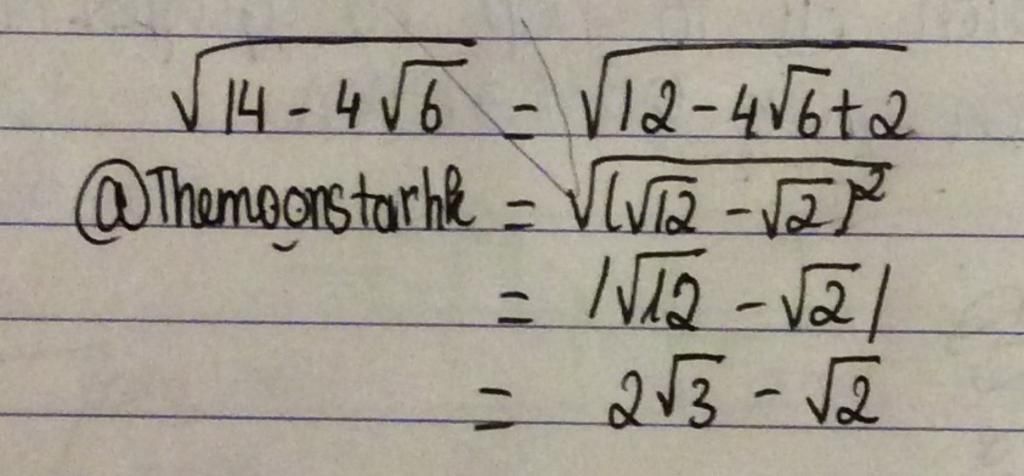 √(14 - 4√6) = √(12 - 4√6 + 2)
@Themoonstarhk = √((√12 - √2)²)
= |√12 - √2|
= 2√3 - √2